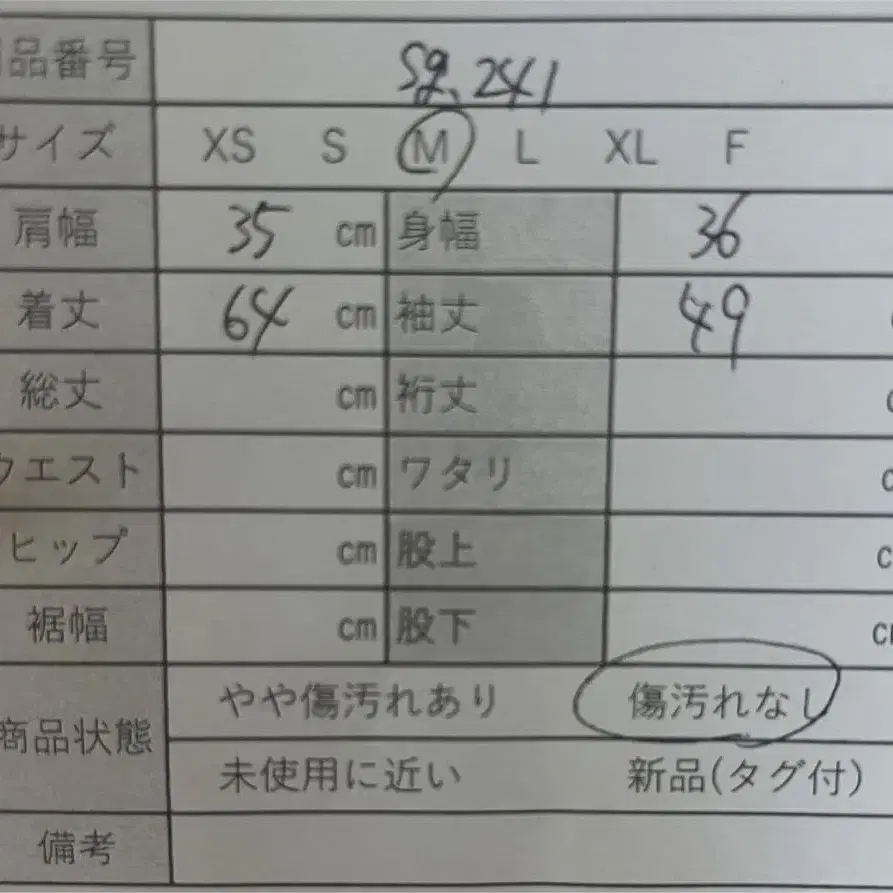 品番号 Sg.241
サイズ XS S M L XL F
肩幅 35 cm 身幅 36
着丈 64 cm 袖丈 49
総丈 cm 裄丈
ウエスト cm ワタリ
ヒップ cm 股上
裾幅 cm 股下 cm
商品状態 やや傷汚れあり 傷汚れなし
未使用に近い 新品(タグ付)
備考